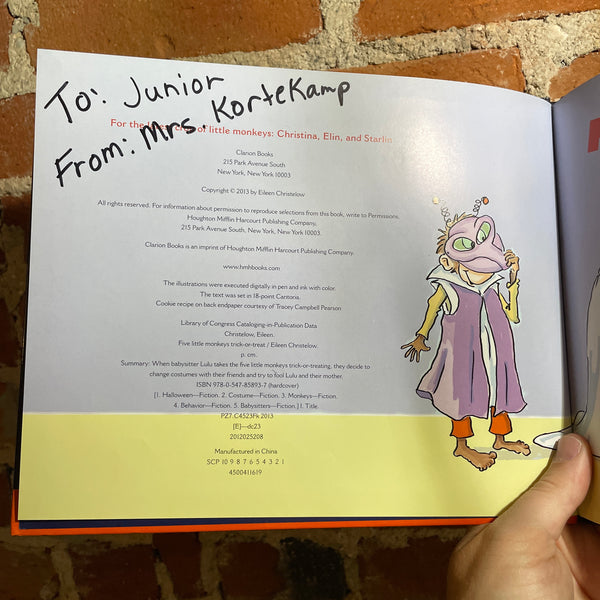 To: Junior
From: Mrs. Kortekamp
For the of little monkeys: Christina, Elin, and Starlin
Clarion Books
215 Park Avenue South
New York, New York 10003
Copyright © 2013 by Eileen Christelow
All rights reserved. For information about permission to reproduce selections from this book, write to Permissions,
Houghton Mifflin Harcourt Publishing Company,
215 Park Avenue South, New York, New York 10003.
Clarion Books is an imprint of Houghton Mifflin Harcourt Publishing Company.
www.hmhbooks.com
The illustrations were executed digitally in pen and ink with color.
The text was set in 18-point Cantoria.
Cookie recipe on back endpaper courtesy of Tracey Campbell Pearson
Library of Congress Cataloging-in-Publication Data
Christelow, Eileen.
Five little monkeys trick-or-treat / Eileen Christelow.
p. cm.
Summary: When babysitter Lulu takes the five little monkeys trick-or-treating, they decide to
change costumes with their friends and try to fool Lulu and their mother.
ISBN 978-0-547-85893-7 (hardcover)
[1. Halloween—Fiction. 2. Costume—Fiction. 3. Monkeys—Fiction.
4. Behavior—Fiction. 5. Babysitters—Fiction.] I. Title.
PZ7.C4523Fk 2013
[E]—dc23
2012025208
Manufactured in China
SCP 10 9 8 7 6 5 4 3 2 1
4500411619